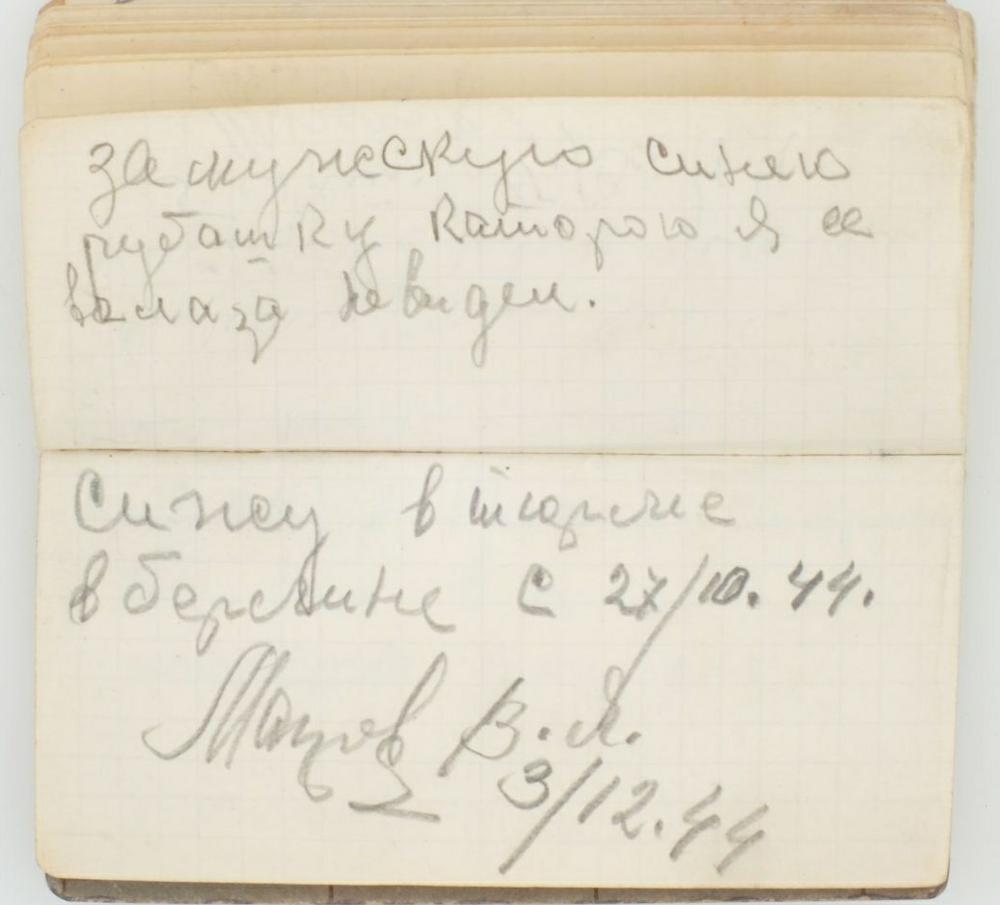 за мужескую синею
рубашку каторою я ее
вглаза невидел.
Сижу в тюрме
в берлине с 27/10. 44.
В. Я.
3/12.44